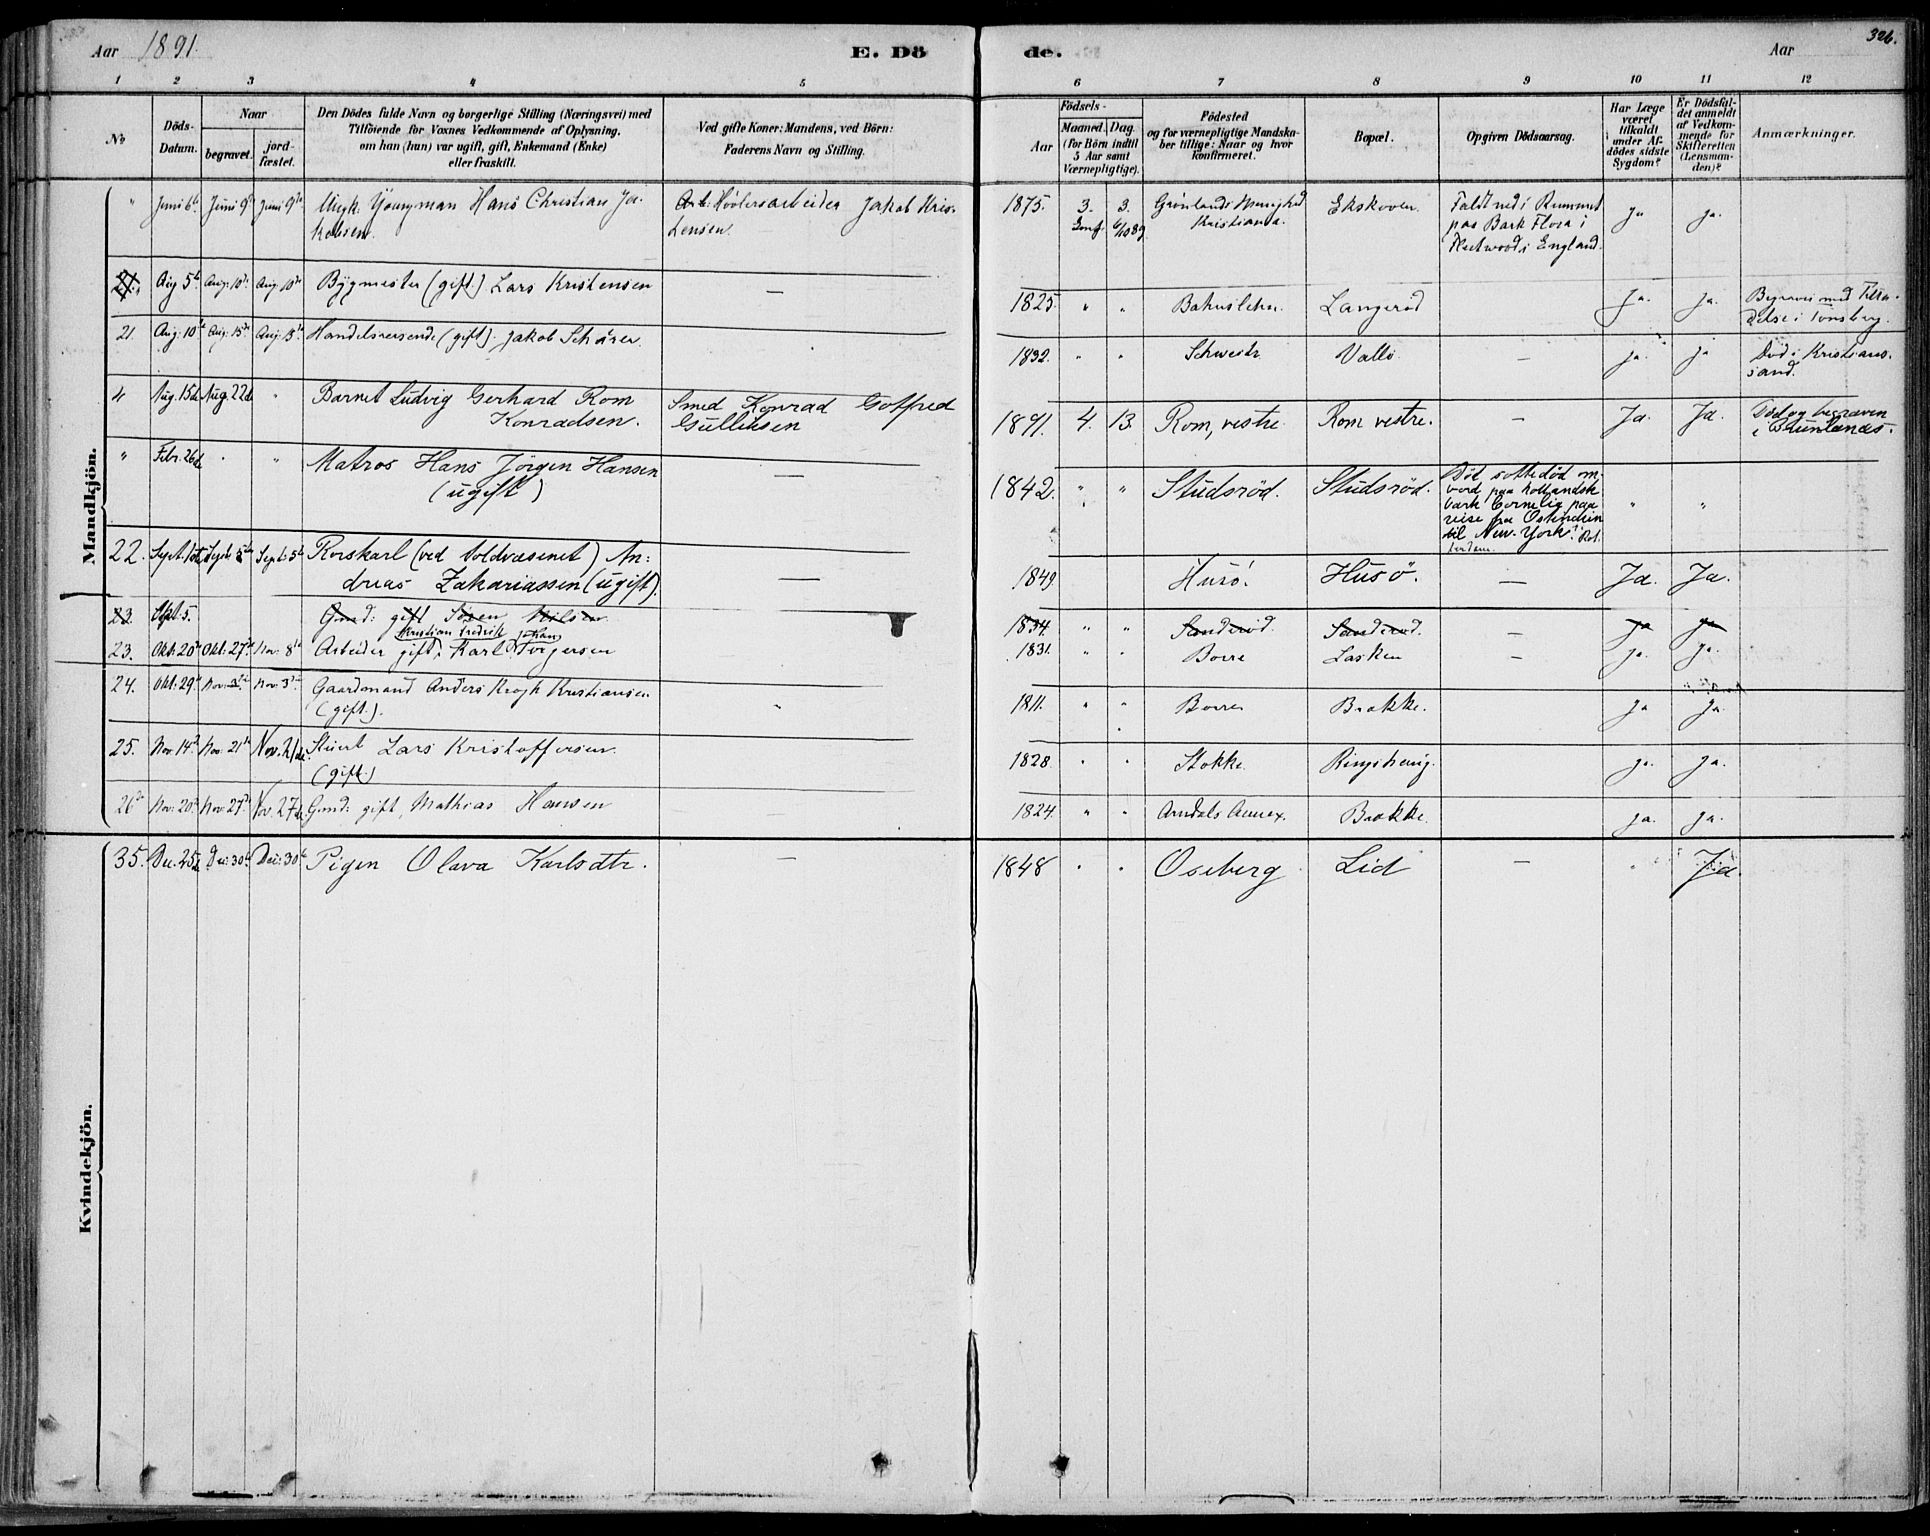 Aar 1891.
E. Dö
de.
Aar
326.
1 2 3 4 5
6 7 8 9 10 11 12
No
Döds-
Datum.
Naar
begravet.
jord-
fæstet.
Den Dödes fulde Navn og borgerlige Stilling (Næringsvei) med
Tilföiende for Voxnes Vedkommende af Oplysning,
om han (hun) var ugift, gift, Enkemand (Enke)
eller fraskilt.
Ved gifte Koner: Mandens, ved Börn:
Faderens Navn og Stilling.
Födsels-
Aar
Maaned.
Dag.
(for Börn indtil
5 Aar samt
Værnepligtige).
Födested
og for værnepligtige Mandska-
ber tillige: Naar og hvor
konfirmeret.
Bopæl.
Opgiven Dödsaarsag.
Har Læge
været
tilkaldt
under Af-
dödes sidste
Sygdom?
Er Dödsfal-
det anmeldt
af Vedkom-
mende for
Skifteretten
(Lensman-
den)?
Anmærkninger.
Mandkjön.
" Juni 6te Juni 9de Juni 9de Ungk. Youngman Hans Christian Ja- Arb: Høvleriarbeider Jakob Kris- 1875. 3. 3. Grønlands Menighed Ekskoven. Faldt ned i Rummet ja ja.
kobsen. tensen. Conf. 6/10 89 Kristiania. paa Bark Flora i
Fleetwood i England.
21. Aug 5te Aug: 10de Aug: 10de Bygmester (gift.) Lars Kristensen — 1825. " " Bahuslehn. Langerød Ja. ja. Begravet med Tilla-
delse i Tønsberg.
21. Aug: 10de Aug: 15de Aug: 15de Handelsreisende (gift). Jakob Schärer. 1832. " " Schweitz Vallø — ja. ja Død i Kristians-
sand.
" Aug. 15de Aug. 22de " Barnet Ludvig Gerhard Rom Smed Konrad Gotfred 1891. 4. 13. Rom, vestre Rom vestre. — Ja. Ja. Død og begraven
Konradsen. Gulliksen i Brunlanæs.
" Febr. 26de " " Matros Hans Jörgen Hansen — 1842. " " Studsröd. Studsröd. Död sottedød om- " "
(ugift) bord paa hollandsk
bark Cornelig paa
reise fra Ostindien
til New-York. Rot-
terdam.
22. Sept. 1ste Sept: 5te Sept: 5te Rorskarl (ved toldvæsenet) An- — 1849. Husö. Husö. — Ja. Ja.
dreas Zakariassen (ugift).
23. Sept. 5. Gmd: gift Sören Nilsen 1834. " " Sanderød. Sanderød. — ja ja
Kristian Fredrik Hans
23. Okt: 20de Okt: 27de Nov: 8de Arbeider gift, Karl Torgersen 1831. " " Borre Lasken — ja. ja.
24. Okt: 29de Nov: 3die Nov: 3die Gaardmand Anders Krogh Kristiansen " 1811. " " Borre Bakke. ja ja.
(gift.).
25. Nov: 14de Nov: 21de Nov. 21de Stuert Lars Kristoffersen. 1828. " " Stokke. Ringshaug. ja. ja.
(gift.)
26de Nov: 20de Nov: 27de Nov. 27de Gmd: gift, Mathias Hansen 1824. " " Arndals Annex. Bakke. ja. ja.
Kvindekjön.
35. Dec. 25de Dec: 30te Dec: 30te Pigen Olava Karlsdtr. — 1848 " " Oseberg Lid — " Ja.